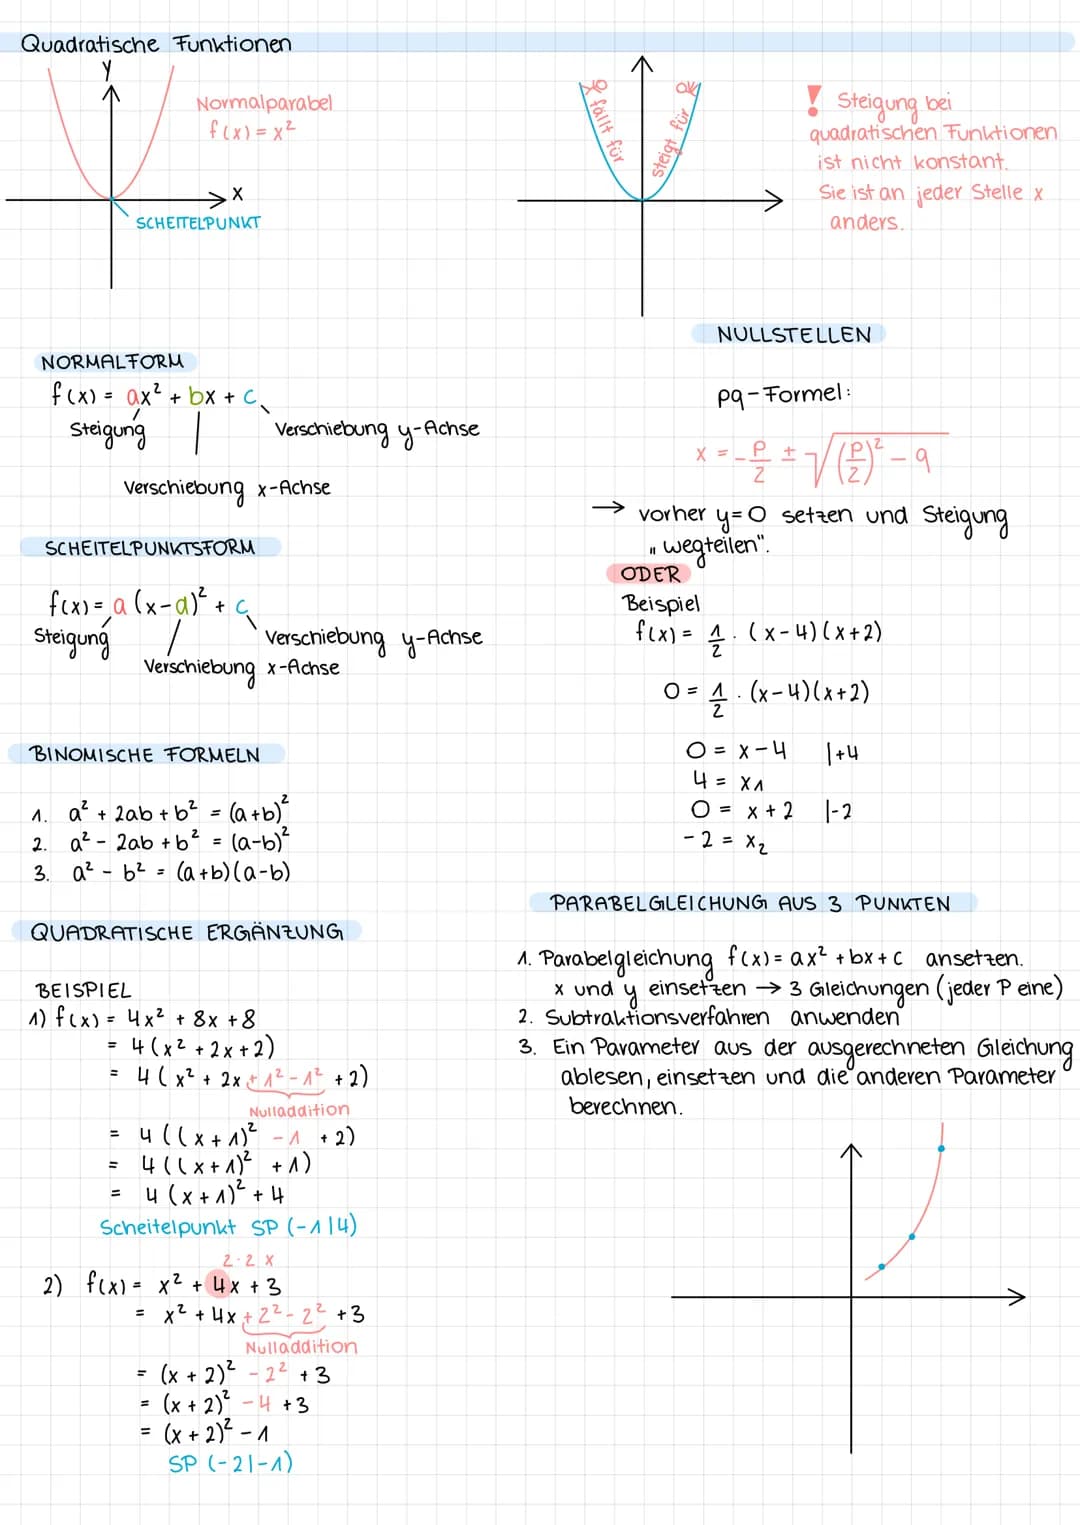 Quadratische Funktionen
Y
Normalparabel
f(x) = x²
X
SCHEITELPUNKT
fällt für
steigt für
! Steigung bei
quadratischen Funktionen
ist nicht konstant.
Sie ist an jeder Stelle x
anders.
NORMALFORM
f(x) = ax² + bx + c
Steigung
Verschiebung y-Achse
Verschiebung x-Achse
SCHEITELPUNKTSFORM
f(x) = a (x-d)² + c
Steigung
Verschiebung y-Achse
Verschiebung x-Achse
BINOMISCHE FORMELN
1. a² + 2ab + b² = (a+b)²
2. a² - 2ab + b² = (a-b)²
3. a² - b² = (a+b)(a-b)
QUADRATISCHE ERGÄNZUNG
BEISPIEL
1) f(x) = 4x² + 8x + 8
= 4(x² + 2x + 2)
= 4 ( x² + 2x + 1² - 1² + 2)
Nulladdition
= 4 ((x + 1)² - 1 + 2)
= 4 ((x + 1)² + 1)
= 4 (x + 1)² + 4
Scheitelpunkt SP (-1|4)
2·2 x
2) f(x) = x² + 4x + 3
= x² + 4x + 2² - 2² + 3
Nulladdition
= (x + 2)² - 2² + 3
= (x + 2)² - 4 + 3
= (x + 2)² - 1
SP (-2|-1)
NULLSTELLEN
pq-Formel:
x = -p/2 ± √((p/2)² - q
→ vorher y=0 setzen und Steigung
„wegteilen".
ODER
Beispiel
f(x) = 1/2 · (x-4)(x+2)
0 = 1/2 · (x-4)(x+2)
0 = x-4 |+4
4 = x1
0 = x + 2 |-2
-2 = x2
PARABELGLEICHUNG AUS 3 PUNKTEN
1. Parabelgleichung f(x) = ax² + bx + c ansetzen.
x und y einsetzen → 3 Gleichungen (jeder P eine)
2. Subtraktionsverfahren anwenden
3. Ein Parameter aus der ausgerechneten Gleichung
ablesen, einsetzen und die anderen Parameter
berechnen.